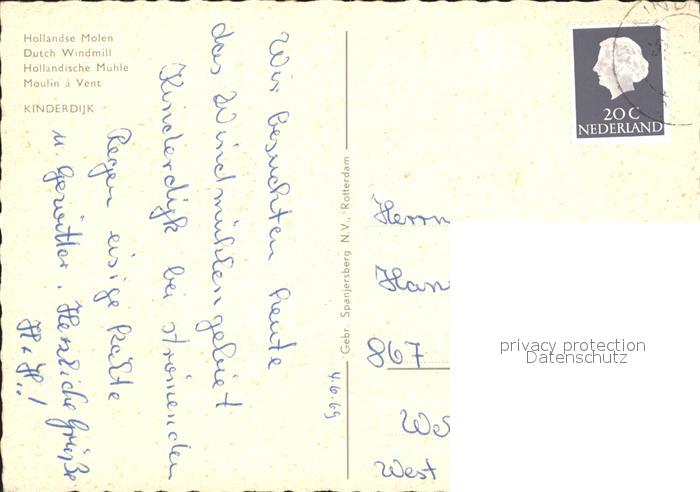 Hollandse Molen
Dutch Windmill
Holländische Mühle
Moulin à Vent
KINDERDIJK
Wir besuchten heute
das Windmühlengebiet
Kinderdijk bei strömenden
Regen eisige Kälte
u. Gewitter. Herzliche Grüße
H + H..!
4.6.69
Gebr. Spanjersberg N.V., Rotterdam
20 C
NEDERLAND
Herrn
Han
867
West
privacy protection
Datenschutz